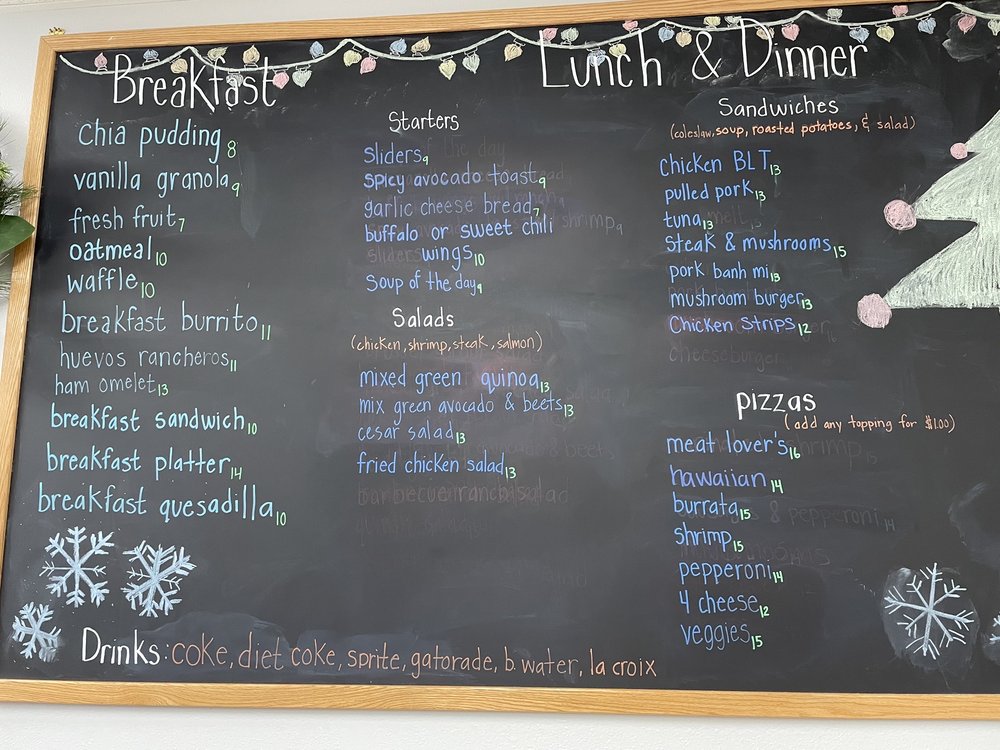 Breakfast
chia pudding 8
vanilla granola 9
fresh fruit 7
oatmeal 10
waffle 10
breakfast burrito 11
huevos rancheros 11
ham omelet 13
breakfast sandwich 10
breakfast platter 14
breakfast quesadilla 10
Lunch & Dinner
Starters
Sliders 9
spicy avocado toast 9
garlic cheese bread 7
buffalo or sweet chili
wings 10
Soup of the day 9
Salads
(chicken, shrimp, steak, salmon)
mixed green quinoa 13
mix green avocado & beets 13
cesar salad 13
fried chicken salad 13
Sandwiches
(coleslaw, soup, roasted potatoes, & salad)
chicken BLT 13
pulled pork 13
tuna 13
steak & mushrooms 15
pork banh mi 13
mushroom burger 13
Chicken Strips 12
cheeseburger
pizzas
(add any topping for $1.00)
meat lover's 16
hawaiian 14
burrata 15
shrimp 15
pepperoni 14
4 cheese 12
veggies 15
Drinks: coke, diet coke, sprite, gatorade, b. water, la croix